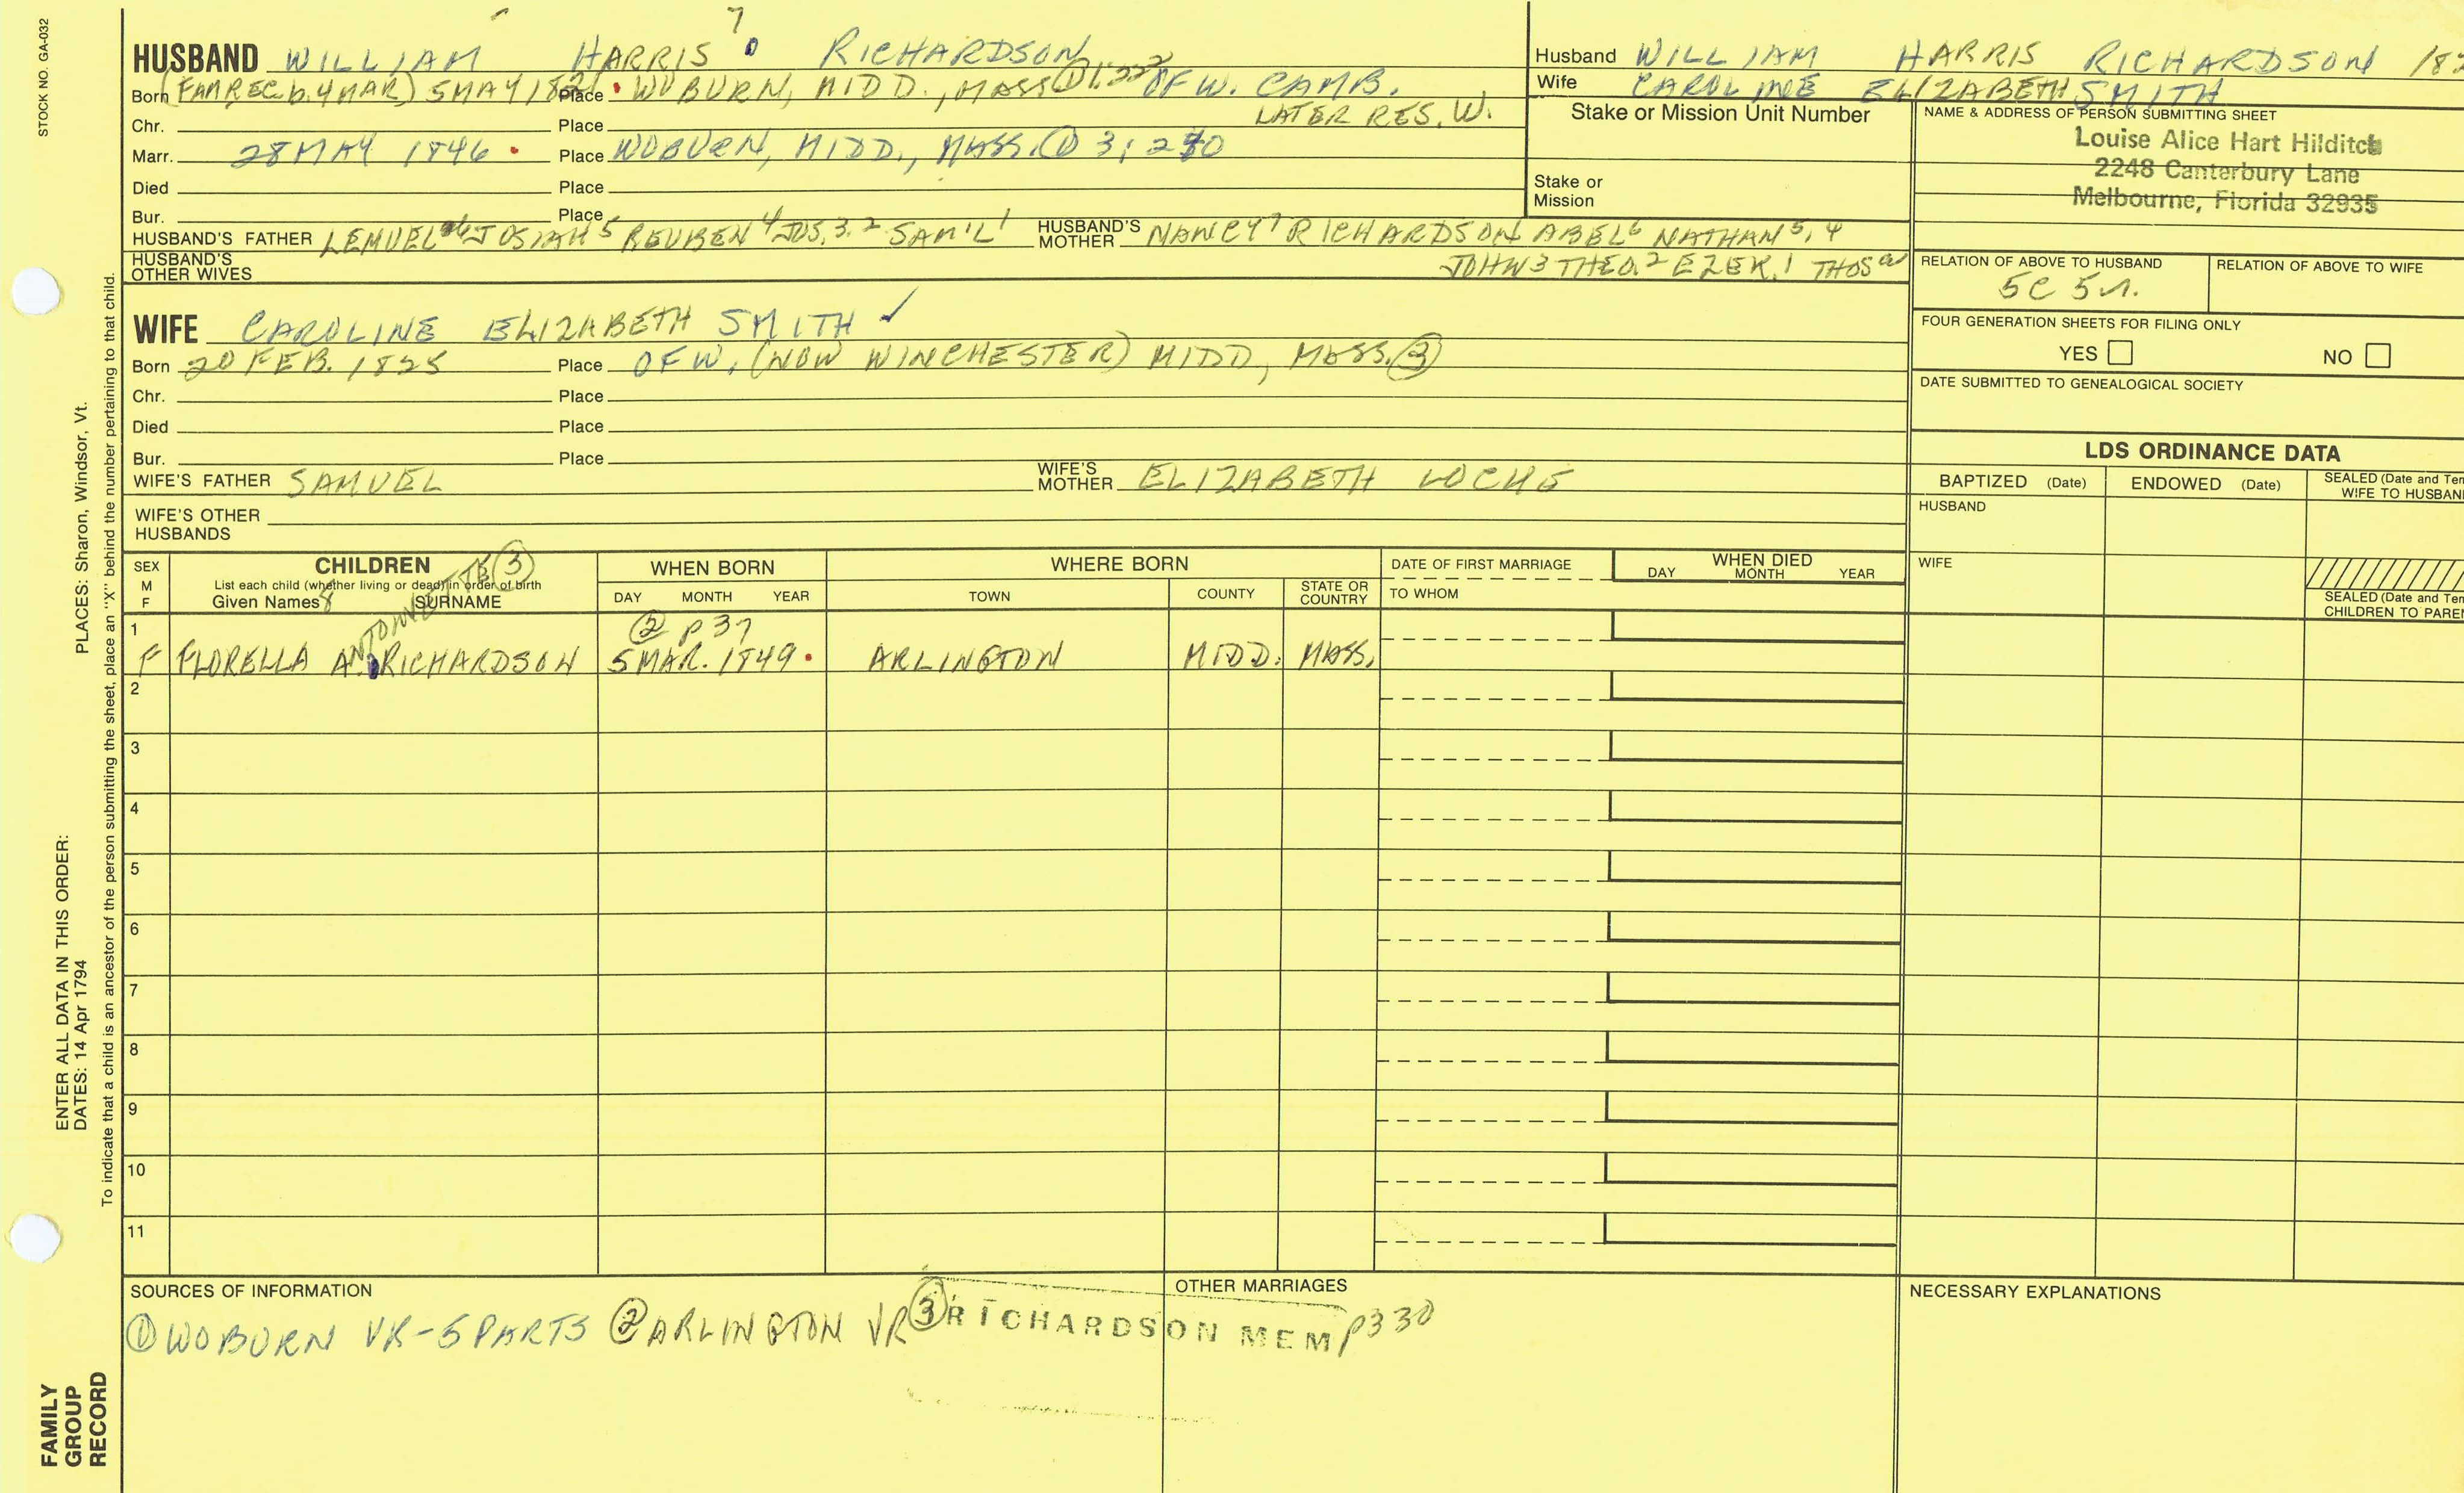 STOCK NO. GA-032
7
HUSBAND WILLIAM HARRIS RICHARDSON
Born (FAM REC b. 4 MAR) 5 MAY 182 Place WOBURN, MIDD., MASS ① 1:222 OF W. CAMB.
LATER RES. W.
Chr. Place
Marr. 28 MAY 1846 Place WOBURN, MIDD., MASS. ① 3:
Died Place
Bur. Place
HUSBAND'S FATHER LEMUEL 6 JOSIAH 5 REUBEN 4 JOS. 3, 2 SAM'L 1 HUSBAND'S MOTHER NANCY 7 RICHARDSON ABEL 6 NATHAN 5, 4
JOHN 3 THEO. 2 EZEK. 1 THOS a
HUSBAND'S OTHER WIVES
WIFE CAROLINE ELIZABETH SMITH ✓
Born 20 FEB. 1825 Place OF W. (NOW WINCHESTER) MIDD, MASS. ③
Chr. Place
Died Place
Bur. Place
WIFE'S FATHER SAMUEL WIFE'S MOTHER ELIZABETH LOCKE
WIFE'S OTHER HUSBANDS
Husband WILLIAM HARRIS RICHARDSON 182
Wife CAROLINE ELIZABETH SMITH
Stake or Mission Unit Number
Stake or Mission
NAME & ADDRESS OF PERSON SUBMITTING SHEET
Louise Alice Hart Hilditch
2248 Canterbury Lane
Melbourne, Florida 32935
RELATION OF ABOVE TO HUSBAND RELATION OF ABOVE TO WIFE
5C 5r.
FOUR GENERATION SHEETS FOR FILING ONLY
YES NO
DATE SUBMITTED TO GENEALOGICAL SOCIETY
LDS ORDINANCE DATA
BAPTIZED (Date) ENDOWED (Date) SEALED (Date and Tem
WIFE TO HUSBAN
HUSBAND
WIFE
SEALED (Date and Tem
CHILDREN TO PAREN
SEX M F
CHILDREN
List each child (whether living or dead) in order of birth
Given Names 8 SURNAME
WHEN BORN
DAY MONTH YEAR
WHERE BORN
TOWN COUNTY STATE OR COUNTRY
DATE OF FIRST MARRIAGE
TO WHOM
WHEN DIED
DAY MONTH YEAR
ANTOINETTE ③
② p 37
1
F FLORELLA A. RICHARDSON 5 MAR. 1849 ARLINGTON MIDD. MASS.
2
3
4
5
6
7
8
9
10
11
SOURCES OF INFORMATION OTHER MARRIAGES NECESSARY EXPLANATIONS
① WOBURN VR-5 PARTS ② ARLINGTON VR ③ RICHARDSON MEM p330
PLACES: Sharon, Windsor, Vt.
ENTER ALL DATA IN THIS ORDER:
DATES: 14 Apr 1794
To indicate that a child is an ancestor of the person submitting the sheet, place an "X" behind the number pertaining to that child.
FAMILY
GROUP
RECORD